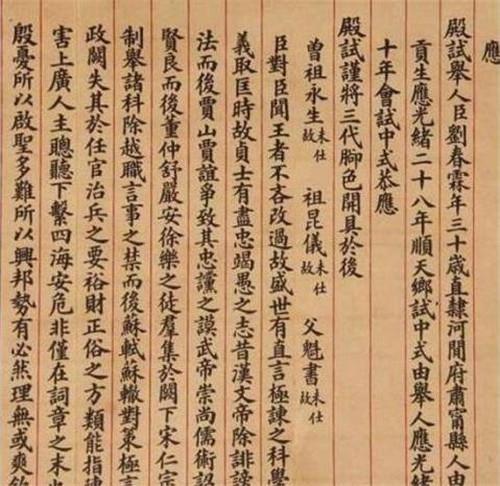 應
殿試舉人臣劉春霖年三十歲直隸河間府肅甯縣人由
貢生應光緒二十八年順天鄉試中式由舉人應光緒
十年會試中式恭應
殿試謹將三代腳色開具於後
曾祖永生未仕故 祖昆儀未仕故 父魁書未仕故
臣對臣聞王者不吝改過故盛世有直言極諫之科學
義取匡時故貞士有盡忠竭愚之志昔漢文帝除誹謗
法而後賈山賈誼爭致其忠讜之謨武帝崇尚儒術詔
賢良而後董仲舒嚴安徐樂之徒羣集於闕下宋仁宗
制舉諸科除越職言事之禁而後蘇軾蘇轍對策極言
政闕失其於任官治兵之要裕財正俗之方類能指陳
害上廣人主聰聽下繫四海安危非僅在詞章之末
殷憂所以啟聖多難所以興邦勢有必然理無或爽欽